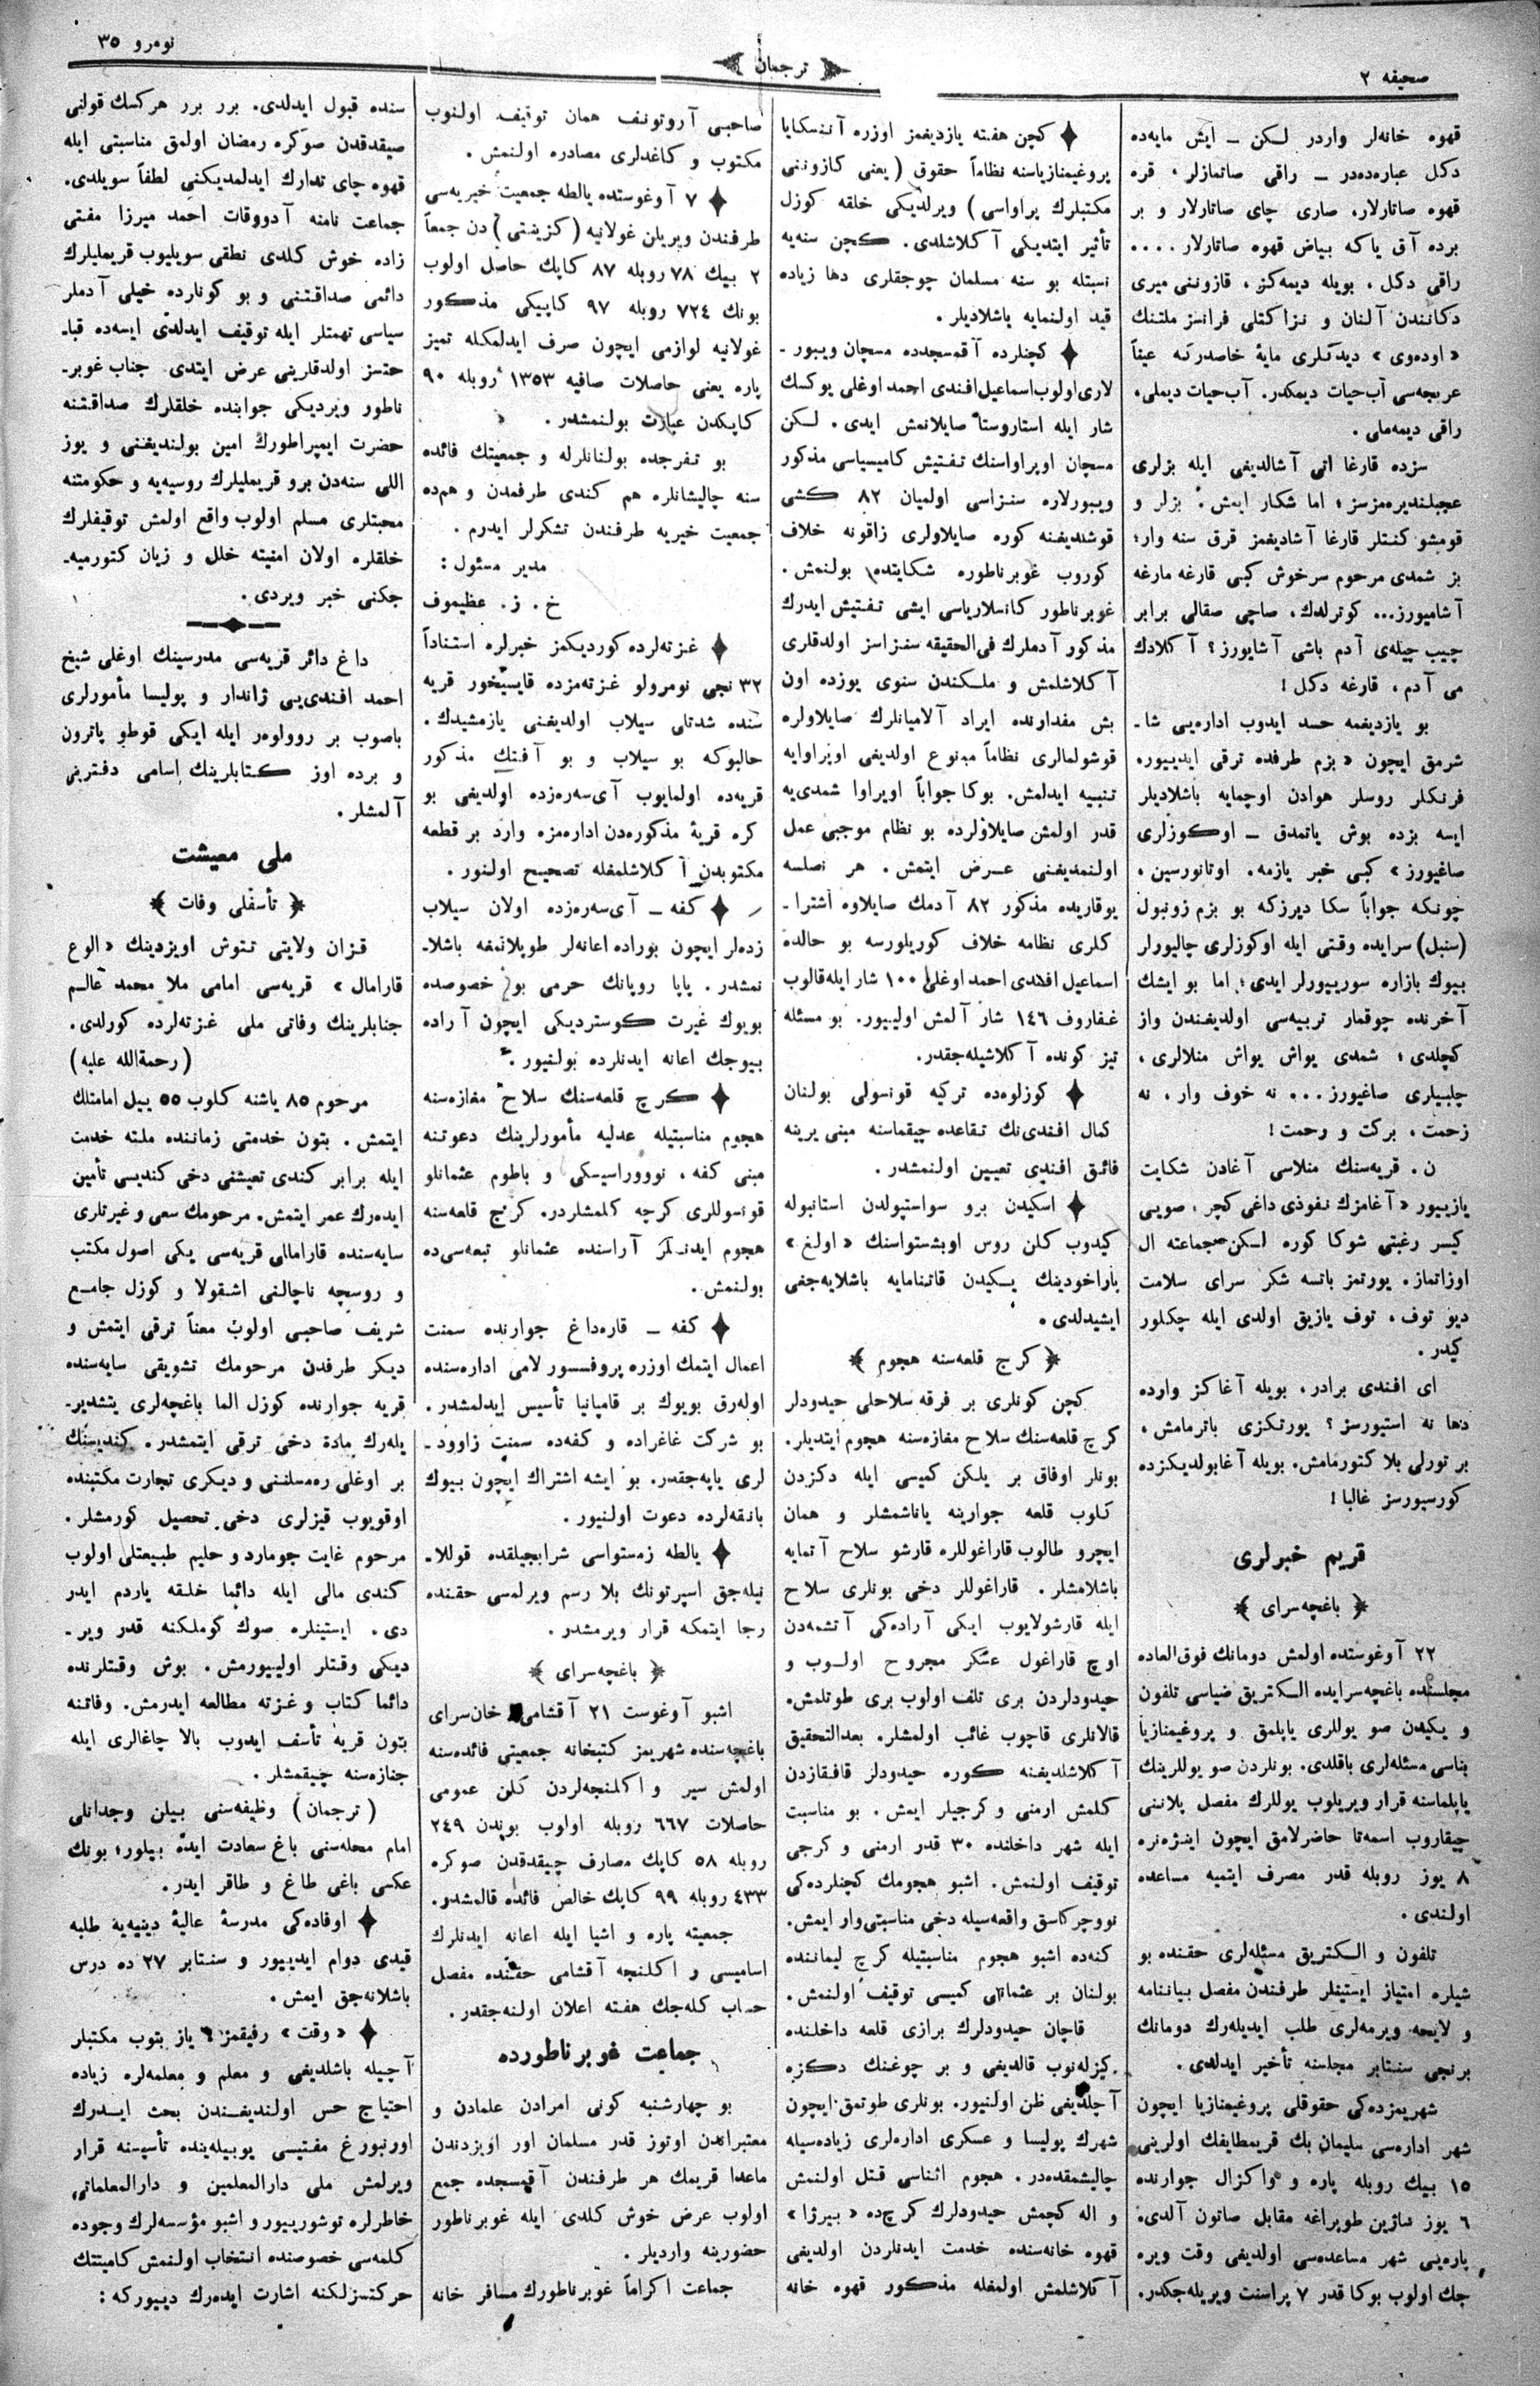 صحیفه ٢
ترجمان
نومرو ٣٥
قهوه خانه‌لر واردر لـكن ــ ایش مایه‌ده
دكل عباره‌ده‌در ــ راقی صاتمازلر، قره
قهوه صاتارلار، صاری چای صاتارلار و بر
برده آق یاكه بیاض قهوه صاتارلار ....
راقی دكل ، بویله دیمه‌كز ، قازوننی میری
دكانندن آلنان و نزاكتلی فرانسز ملتنك
« اوده‌وی » دیدكلری مایۀ خاصدركه عیناً
عربجه‌سی آب‌حیات دیمكدر. آب‌حیات دیملی،
راقی دیمه‌ملی .
سزده قارغا اتی آشالدیغی ایله بزلری
عجبلندیره‌مزسز ؛ اما شكار ایمش. بزلر و
قومشو كنتلر قارغا آشادیغمز قرق سنه وار؛
بز شمدی مرحوم سرخوش كبی قارغه مارغه
آشامیورز... كوترلدك، صاچی صقالی برابر
چیپ چیله‌ی آدم باشی آشایورز؟ آكلادك
می آدم ، قارغه دكل !
بو یازدیغمه حسد ایدوب اداره‌یی شا-
شرمق ایچون « بزم طرفده ترقی ایدییور.
فرنكلر روسلر هوادن اوچمایه باشلادیلر
ایسه بزده بوش یاتمدق ــ اوكوزلری
صاغیورز » كبی خبر یازمه. اوتانورسین ،
چونكه جواباً سكا دیرزكه بو بزم زونبول
(سنبل) سرایده وقتی ایله اوكوزلری چالیورلر
بیوك بازاره سورییورلر ایدی ؛ اما بو ایشك
آخرنده چوقمار تربیه‌سی اولدیغندن واز
كچلدی ؛ شمدی یواش یواش منلالری ،
چلبیلری صاغیورز ... نه خوف وار ، نه
زحمت ، بركت و رحمت !
ن . قریه‌سنك منلاسی آغادن شكایت
یازییور « آغامزك نفوذی داغی كچر ، صویی
كیسر رغبتی شوكا كوره لـكن جماعته ال
اوزاتماز. یورتمز باتسه شكر سرای سلامت
دیو توف ، توف یازیق اولدی ایله چكلور
كیدر .
ای افندی برادر ، بویله آغاكز وارده
دها نه استیورسز ؟ یورتكزی باترمامش ،
بر تورلی بلا كتورمامش. بویله آغابولدیكزده
كورسیورسز غالبا !
قریم خبرلری
﴿ باغچه‌سرای ﴾
٢٢ آوغوستده اولمش دومانك فوق‌العاده
مجلسنده باغچه‌سرایده الـكتریق ضیاسی تلفون
و یكیدن صو یوللری یاپلمق و پروغیمنازیا
بناسی مسئله‌لری باقلدی. بونلردن صو یوللرینك
یاپلماسنه قرار ویریلوب یوللرك مفصل پلاننی
چیقاروب اسمه‌تا حاضرلامق ایچون اینژه‌نره
٨ یوز روبله قدر مصرف ایتمیه مساعده
اولندی .
تلفون و الـكتریق مسئله‌لری حقنده بو
شیلره امتیاز ایستینلر طرفندن مفصل بیاننامه
و لایحه ویرمه‌لری طلب ایدیله‌رك دومانك
برنجی سنتابر مجلسنه تأخیر ایدلدی .
شهریمزده‌كی حقوقلی پروغیمنازیا ایچون
شهر اداره‌سی سلیمان بك قریمطایفك اولرینی
١٥ بیك روبله پاره و واكزال جوارنده
٦ یوز ساژین طوپراغه مقابل صاتون آلدی.
پاره‌یی شهر مساعده‌سی اولدیغی وقت ویره
جك اولوب بوكا قدر ٧ پراسنت ویریله‌جكدر.
كچن هفته یازدیغمز اوزره آننسكایا
پروغیمنازیاسنه نظاماً حقوق ( یعنی كازوننی
مكتبلرك پراواسی ) ویرلدیكی خلقه كوزل
تأثیر ایتدیكی آكلاشلدی. كچن سنه‌یه
نسبتله بو سنه مسلمان چوجقلری دها زیاده
قید اولنمایه باشلادیلر .
كچنلرده آقمسجدده مسچان ویبور-
لاری اولوب اسماعیل افندی احمد اوغلی یوكسك
شار ایله استاروستا صایلانمش ایدی . لـكن
مسچان اوپراواسنك تفتیش كامیسیاسی مذكور
ویبورلاره سنزاسی اولمیان ٨٢ كشی
قوشلدیغنه كوره صایلاولری زاقونه خلاف
كوروب غوبرناطوره شكایتده بولنمش .
غوبرناطور كانسلاریاسی ایشی تفتیش ایدرك
مذكور آدملرك فی‌الحقیقه سنزاسز اولدقلری
آكلاشلمش و ملـكندن سنوی یوزده اون
بش مقدارنده ایراد آلامیانلرك صایلاولره
قوشولمالری نظاماً ممنوع اولدیغی اوپراوایه
تنبیه ایدلمش. بوكا جواباً اوپراوا شمدی‌یه
قدر اولمش صایلاولرده بو نظام موجبی عمل
اولنمدیغنی عـرض ایتمش . هر نصلسه
یوقاریده مذكور ٨٢ آدمك صایلاوه اشترا-
كلری نظامه خلاف كوریلورسه بو حالده
اسماعیل افندی احمد اوغلی ١٠٠ شار ایله قالوب
غفاروف ١٤٦ شار آلمش اولییور. بو مسئله
تیز كونده آكلاشیله‌جقدر.
كوزلوه‌ده تركیه قونسولی بولنان
كمال افندی‌نك تقاعده چیقماسنه مبنی یرینه
فائق افندی تعیین اولنمشدر .
اسكیدن برو سواستپولدن استانبوله
كیدوب كلن روس اوبشستواسنك « اولغ »
پاراخودینك یـكیدن قاتنامایه باشلایه‌جغی
ایشیدلدی .
﴿ كرچ قلعه‌سنه هجوم ﴾
كچن كونلری بر فرقه سلاحلی حیدودلر
كرچ قلعه‌سنك سلاح مغازه‌سنه هجوم ایتدیلر.
بونلر اوفاق بر یلكن كمیسی ایله دكزدن
كلوب قلعه جوارینه یاناشمشلر و همان
ایچرو طالوب قاراغوللره قارشو سلاح آتمایه
باشلامشلر . قاراغوللر دخی بونلری سلاح
ایله قارشولایوب ایكی آراده‌كی آتشمه‌دن
اوچ قاراغول عسكر مجروح اولـوب و
حیدودلردن بری تلف اولوب بری طوتلمش.
قالانلری قاچوب غائب اولمشلر. بعدالتحقیق
آكلاشلدیغنه كوره حیدودلر قافقازدن
كلمش ارمنی و كرجیلر ایمش . بو مناسبت
ایله شهر داخلنده ٣٠ قدر ارمنی و كرجی
توقیف اولنمش. اشبو هجومك كچنلرده‌كی
نووچركاسق واقعه‌سیله دخی مناسبتی وار ایمش.
كنه‌ده اشبو هجوم مناسبتیله كرچ لیماننده
بولنان بر عثمانلی كمیسی توقیف اولنمش .
قاچان حیدودلرك برازی قلعه داخلنده
كیزله‌نوب قالدیغی و بر چوغنك دكزه
آچلدیغی ظن اولنیور. بونلری طوتمق ایچون
شهرك پولیسا و عسكری اداره‌لری زیاده‌سیله
چالیشمقده‌در . هجوم اثناسی قتل اولنمش
و اله كچمش حیدودلرك كرچ‌ده « بیرژا »
قهوه خانه‌سنده خدمت ایدنلردن اولدیغی
آكلاشلمش اولمغله مذكور قهوه خانه
صاحبی آروتونف همان توقیف اولنوب
مكتوب و كاغدلری مصادره اولنمش .
٧ آوغوستده یالطه جمعیت خیریه‌سی
طرفندن ویریلن غولانیه (كزینتی) دن جمعاً
٢ بیك ٧٨ روبله ٨٧ كاپك حاصل اولوب
بونك ٧٢٤ روبله ٩٧ كاپیكی مذكور
غولانیه لوازمی ایچون صرف ایدلمكله تمیز
پاره یعنی حاصلات صافیه ١٣٥٣ روبله ٩٠
كاپكدن عبارت بولنمشدر .
بو تفرجده بولنانلرله و جمعیتك فائده
سنه چالیشانلره هم كندی طرفمدن و هم‌ده
جمعیت خیریه طرفندن تشكرلر ایدرم .
مدیر مسئول :
خ . ز . عظیموف
غزته‌لرده كوردیكمز خبرلره استناداً
٣٢ نجی نومرولو غزته‌مزده قایسیخور قریه
سنده شدتلی سیلاب اولدیغنی یازمشیدك .
حالبوكه بو سیلاب و بو آفتك مذكور
قریه‌ده اولمایوب آی‌سه‌ره‌زده اولدیغی بو
كره قریۀ مذكوره‌دن اداره‌مزه وارد بر قطعه
مكتوبدن آكلاشلمغله تصحیح اولنور .
كفه ــ آی‌سه‌ره‌زده اولان سیلاب
زده‌لر ایچون بوراده اعانه‌لر طوپلانمغه باشلا-
نمشدر . پاپا روپانك حرمی بو خصوصده
بویوك غیرت كوستردیكی ایچون آراده
بیوجك اعانه ایدنلرده بولنیور .
كرچ قلعه‌سنك سلاح مغازه‌سنه
هجوم مناسبتیله عدلیه مأمورلرینك دعوتنه
مبنی كفه ، نووروراسیسكی و باطوم عثمانلو
قونسوللری كرچه كلمشلردر. كرچ قلعه‌سنه
هجوم ایدنلر آراسنده عثمانلو تبعه‌سی‌ده
بولنمش .
كفه ــ قاره‌داغ جوارنده سمنت
اعمال ایتمك اوزره پروفسسور لامی اداره‌سنده
اوله‌رق بویوك بر قامپانیا تأسیس ایدلمشدر .
بو شركت غاغراده و كفه‌ده سمنت زاوود-
لری یاپه‌جقدر. بو ایشه اشتراك ایچون بیوك
بانقه‌لرده دعوت اولنیور .
یالطه زمستواسی شرابجیلقده قوللا-
نیله‌جق اسپرتونك بلا رسم ویرلمسی حقنده
رجا ایتمكه قرار ویرمشدر .
﴿ باغچه‌سرای ﴾
اشبو آوغوست ٢١ آقشامی خان‌سرای
باغچه‌سنده شهریمز كتبخانه جمعیتی فائده‌سنه
اولمش سیر و اكلنجه‌لردن كلن عمومی
حاصلات ٦٦٧ روبله اولوب بوندن ٢٤٩
روبله ٥٨ كاپك مصارف چیقدقدن صوكره
٤٣٣ روبله ٩٩ كاپك خالص فائده قالمشدر.
جمعیته پاره و اشیا ایله اعانه ایدنلرك
اسامیسی و اكلنجه آقشامی حقنده مفصل
حساب كله‌جك هفته اعلان اولنه‌جقدر .
جماعت غوبرناطورده
بو چهارشنبه كونی امرادن علمادن و
معتبراندن اوتوز قدر مسلمان اور اوبزدندن
ماعدا قریمك هر طرفندن آقمسجده جمع
اولوب عرض خوش كلدی ایله غوبرناطور
حضورینه واردیلر .
جماعت اكراماً غوبرناطورك مسافر خانه
سنده قبول ایدلدی. برر برر هركسك قولنی
صیقدقدن صوكره رمضان اولمق مناسبتی ایله
قهوه چای تدارك ایدلمدیكنی لطفاً سویلدی.
جماعت نامنه آدووقات احمد میرزا مفتی
زاده خوش كلدی نطقی سویلیوب قریملیلرك
دائمی صداقتنی و بو كونارده خیلی آدملر
سیاسی تهمتلر ایله توقیف ایدلدی ایسه‌ده قبا-
حتسز اولدقلرینی عرض ایتدی جناب غوبر-
ناطور ویردیكی جوابنده خلقلرك صداقتنه
حضرت ایمپراطورك امین بولندیغنی و یوز
اللی سنه‌دن برو قریملیلرك روسیه‌یه و حكومتنه
محبتلری مسلم اولوب واقع اولمش توقیفلرك
خلقلره اولان امنیته خلل و زیان كتورمیه-
جكنی خبر ویردی .
داغ دائر قریه‌سی مدرسینك اوغلی شیخ
احمد افندی‌یی ژاندار و پولیسا مأمورلری
باصوب بر روولوهر ایله ایكی قوطو پاترون
و برده اوز كـتابلرینك اسامی دفترینی
آلمشلر .
ملی معیشت
﴿ تأسفلی وفات ﴾
قـزان ولایتی تتوش اویزدینك « الوغ
قارامال » قریه‌سی امامی ملا محمد عالـم
جنابلرینك وفاتی ملی غزته‌لرده كورلدی .
(رحمةالله علیه)
مرحوم ٨٥ یاشنه كلوب ٥٥ ییل امامتلك
ایتمش . بتون خدمتی زماننده ملته خدمت
ایله برابر كندی تعیشنی دخی كندیسی تأمین
ایده‌رك عمر ایتمش. مرحومك سعی و غیرتلری
سایه‌سنده قارامالی قریه‌سی یكی اصول مكتب
و روسچه ناچالنی اشقولا و كوزل جامـع
شریف صاحبی اولوب معناً ترقی ایتمش و
دیكر طرفدن مرحومك تشویقی سایه‌سنده
قریه جوارنده كوزل الما باغچه‌لری یتشدیر-
یله‌رك مادة دخی ترقی ایتمشدر. كندیسنك
بر اوغلی ره‌مسلننی و دیكری تجارت مكتبنده
اوقویوب قیزلری دخی تحصیل كورمشلر .
مرحوم غایت جومارد و حلیم طبیعتلی اولوب
كندی مالی ایله دائما خلـقه یاردم ایدر
دی . ایستینلره صوك كوملـكنه قدر ویر-
دیكی وقتلر اولییورمش . بوش وقتلرنده
دائما كتاب و غزته مطالعه ایدرمش. وفاتنه
بتون قریه تأسف ایدوب بالا چاغالری ایله
جنازه‌سنه چیقمشلر .
(ترجمان) وظیفه‌سنی بیلن وجدانلی
امام محله‌سنی باغ سعادت ایده بیلور؛ بونك
عكسی باغی طاغ و طاقر ایدر.
اوفاده‌كی مدرسۀ عالیۀ دینیه‌یه طلبه
قیدی دوام ایدییور و سنتابر ٢٧ ده درس
باشلانه‌جق ایمش .
« وقت » رفیقمز یاز بتوب مكتبلر
آچیله باشلدیغی و معلم و معلمه‌لره زیاده
احتیاج حس اولندیغندن بحث ایـدرك
اورنبورغ مفتیسی یوبیله‌ینده تأسیسنه قرار
ویرلمش ملی دارالمعلمین و دارالمعلماتی
خاطرلره توشورییور و اشبو مؤسسه‌لرك وجوده
كلمه‌سی خصوصنده انتخاب اولنمش كامیتتك
حركتسزلكنه اشارت ایده‌رك دییوركه :